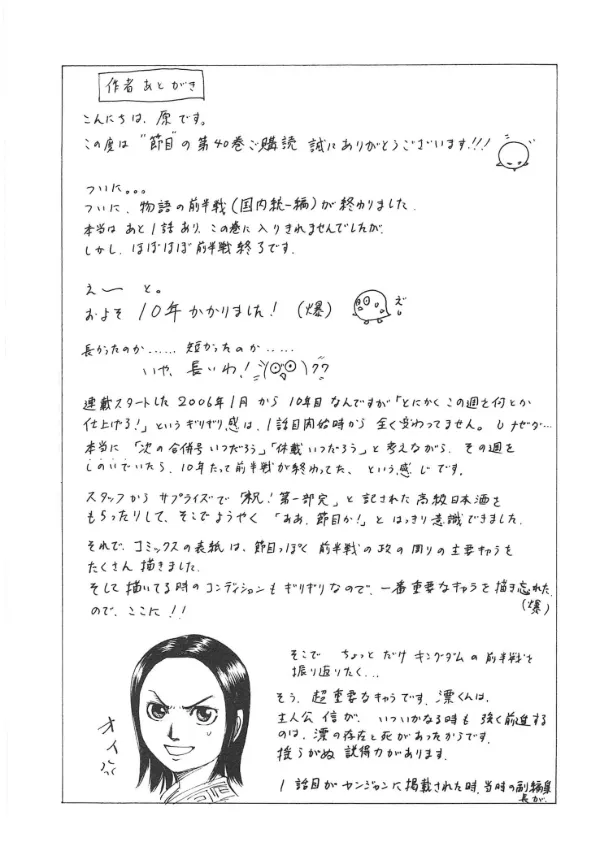 作者あとがき
こんにちは、原です。
この度は"節目"の第40巻ご購読 誠にありがとうございます!!!
ついに。。。
ついに、物語の前半戦(国内統一編)が終わりました。
本当は あと1話あり、この巻に入りきれませんでしたが、
しかし、ほぼほぼ前半戦終了です。
えー と。
およそ 10年かかりました!(爆)
えし
長かったのか......短かったのか.....
いや、長いわ!
??
連載スタートした 2006年1月 から 10年目 なんですが「とにかく この週を何とか
仕上げる!」というギリギリ感は、1話目開始時から 全く変わってません。なぜだ…
本当に「次の合併号 いつだろう」「休載いつだろう」と考えながら、その週を
しのいでいたら、10年たって前半戦が終わってた、という感じです。
スタッフから サプライズで「祝!第一部完」と記された 高級日本酒を
もらったりして、そこでようやく「ああ、節目か!」と はっきり意識できました。
それで、コミックスの表紙は、節目っぽく 前半戦の政の周りの主要キャラを
たくさん描きました。
そして描いてる時のコンディションもギリギリなので、一番重要なキャラを描き忘れた
(爆)
ので、ここに!!
オイ
そこで ちょっとだけ キングダムの前半戦を
振り返りたく...
そう、超重要なキャラです。漂くんは。
主人公 信が、いついかなる時も 強く前進する
のは、漂の存在と死があったからです。
揺らがぬ 説得力があります。
1話目がヤンジャンに掲載された時、当時の副編集
長が、